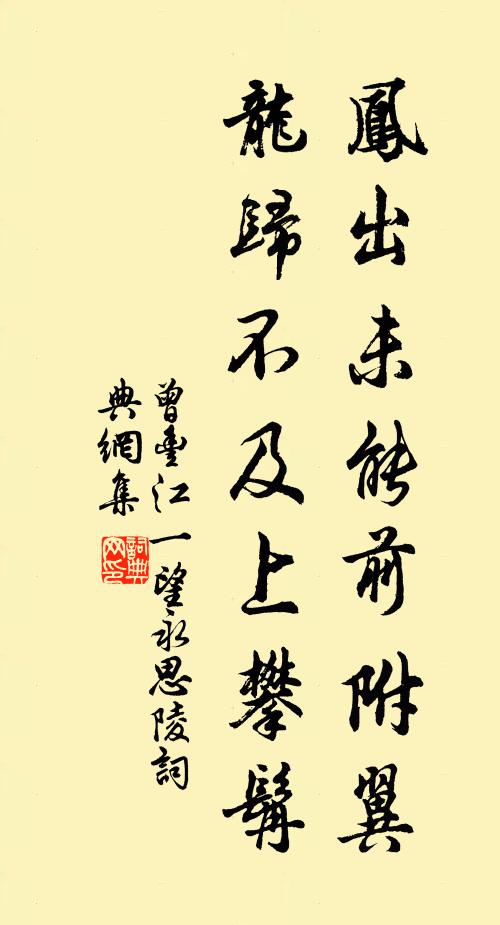 鳳出未能前附翼
龍歸不及上攀髯
曾豐江一望永思陵詞
典網集
詞典網印